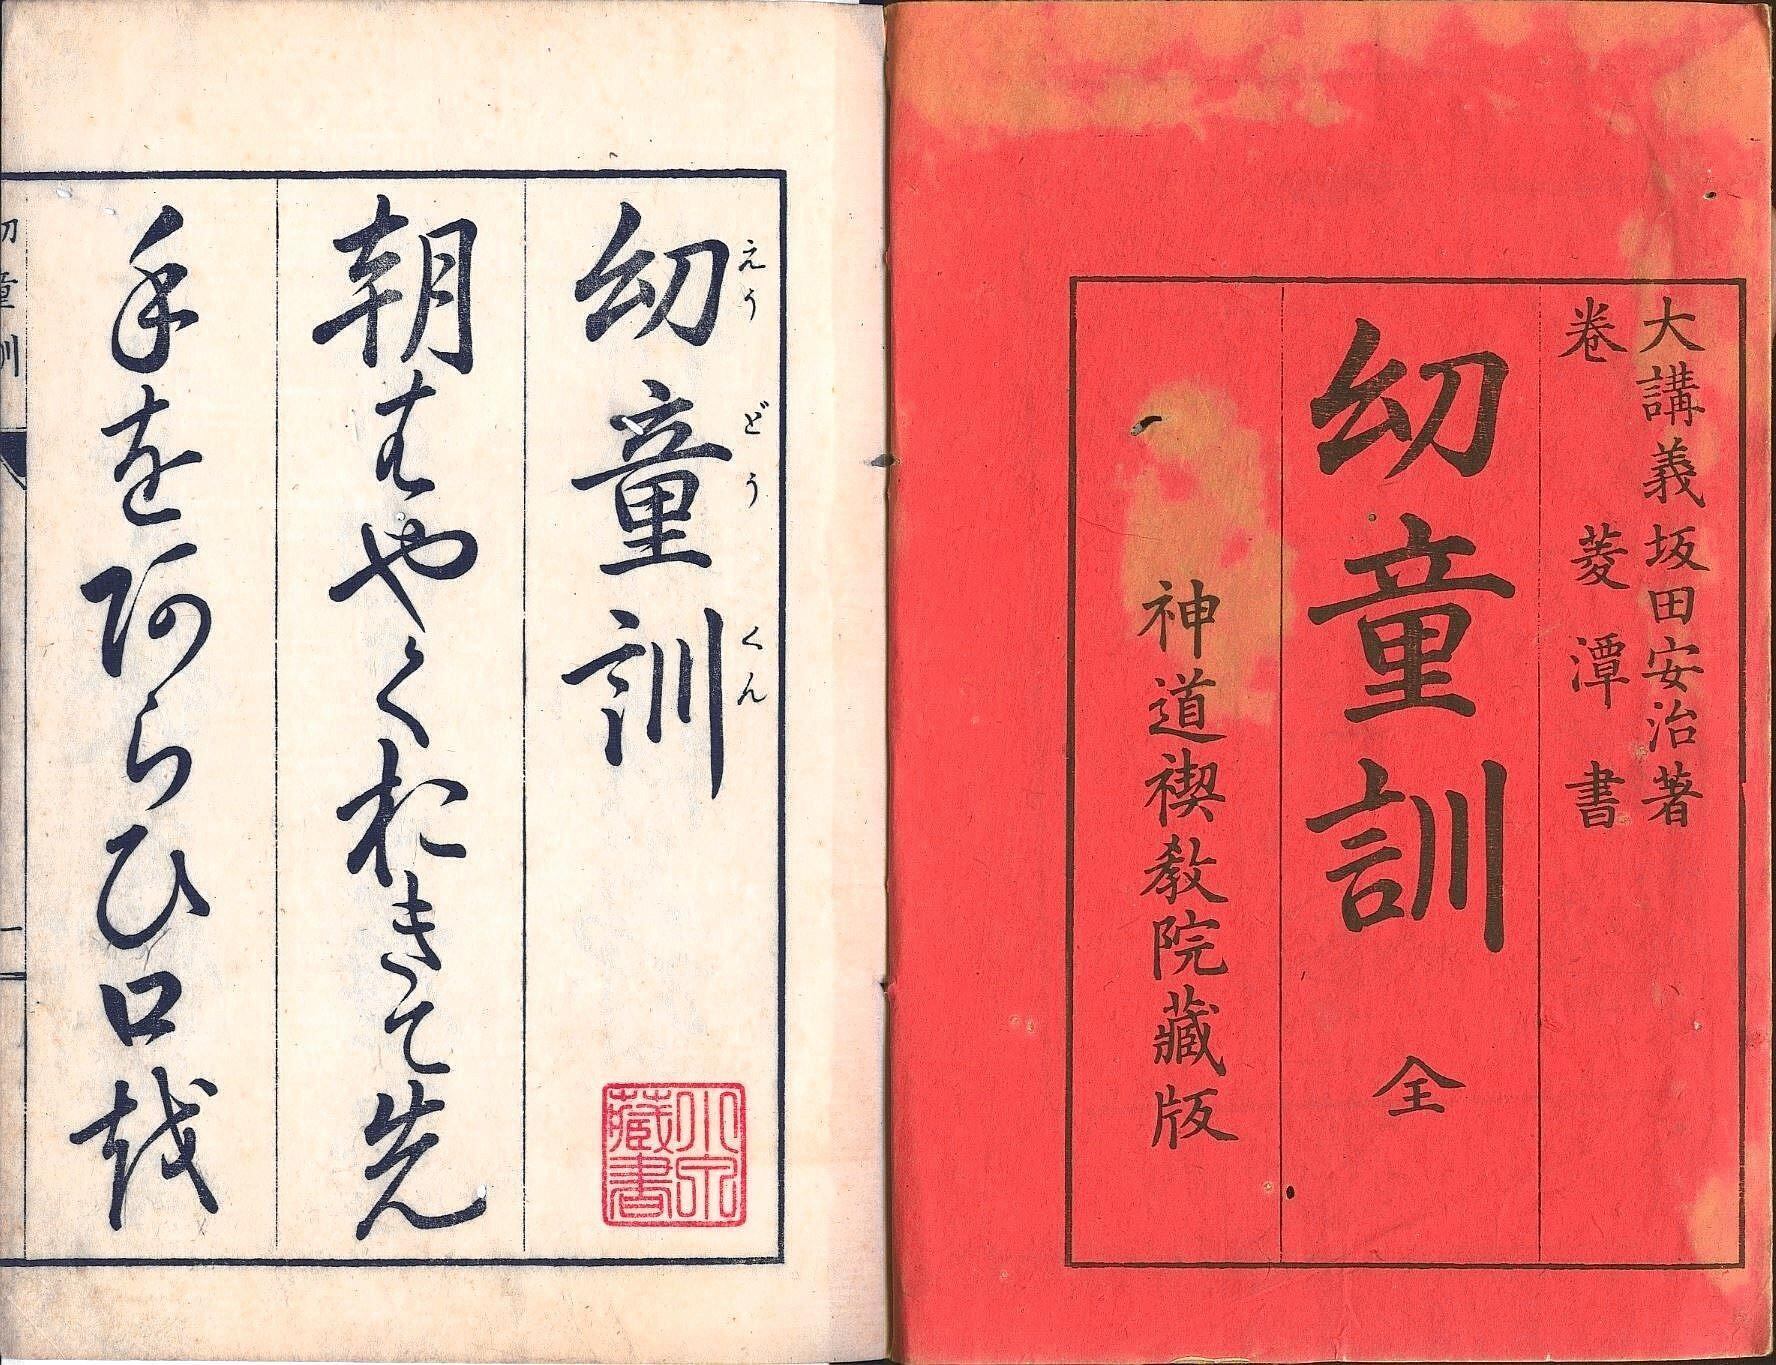 大講義坂田安治著
卷菱潭書
幼童訓 全
神道禊教院藏版
幼童訓
えうどうくん
小宮藏書
朝はやくおきて先
手を阿らひ口越
幼童訓
一